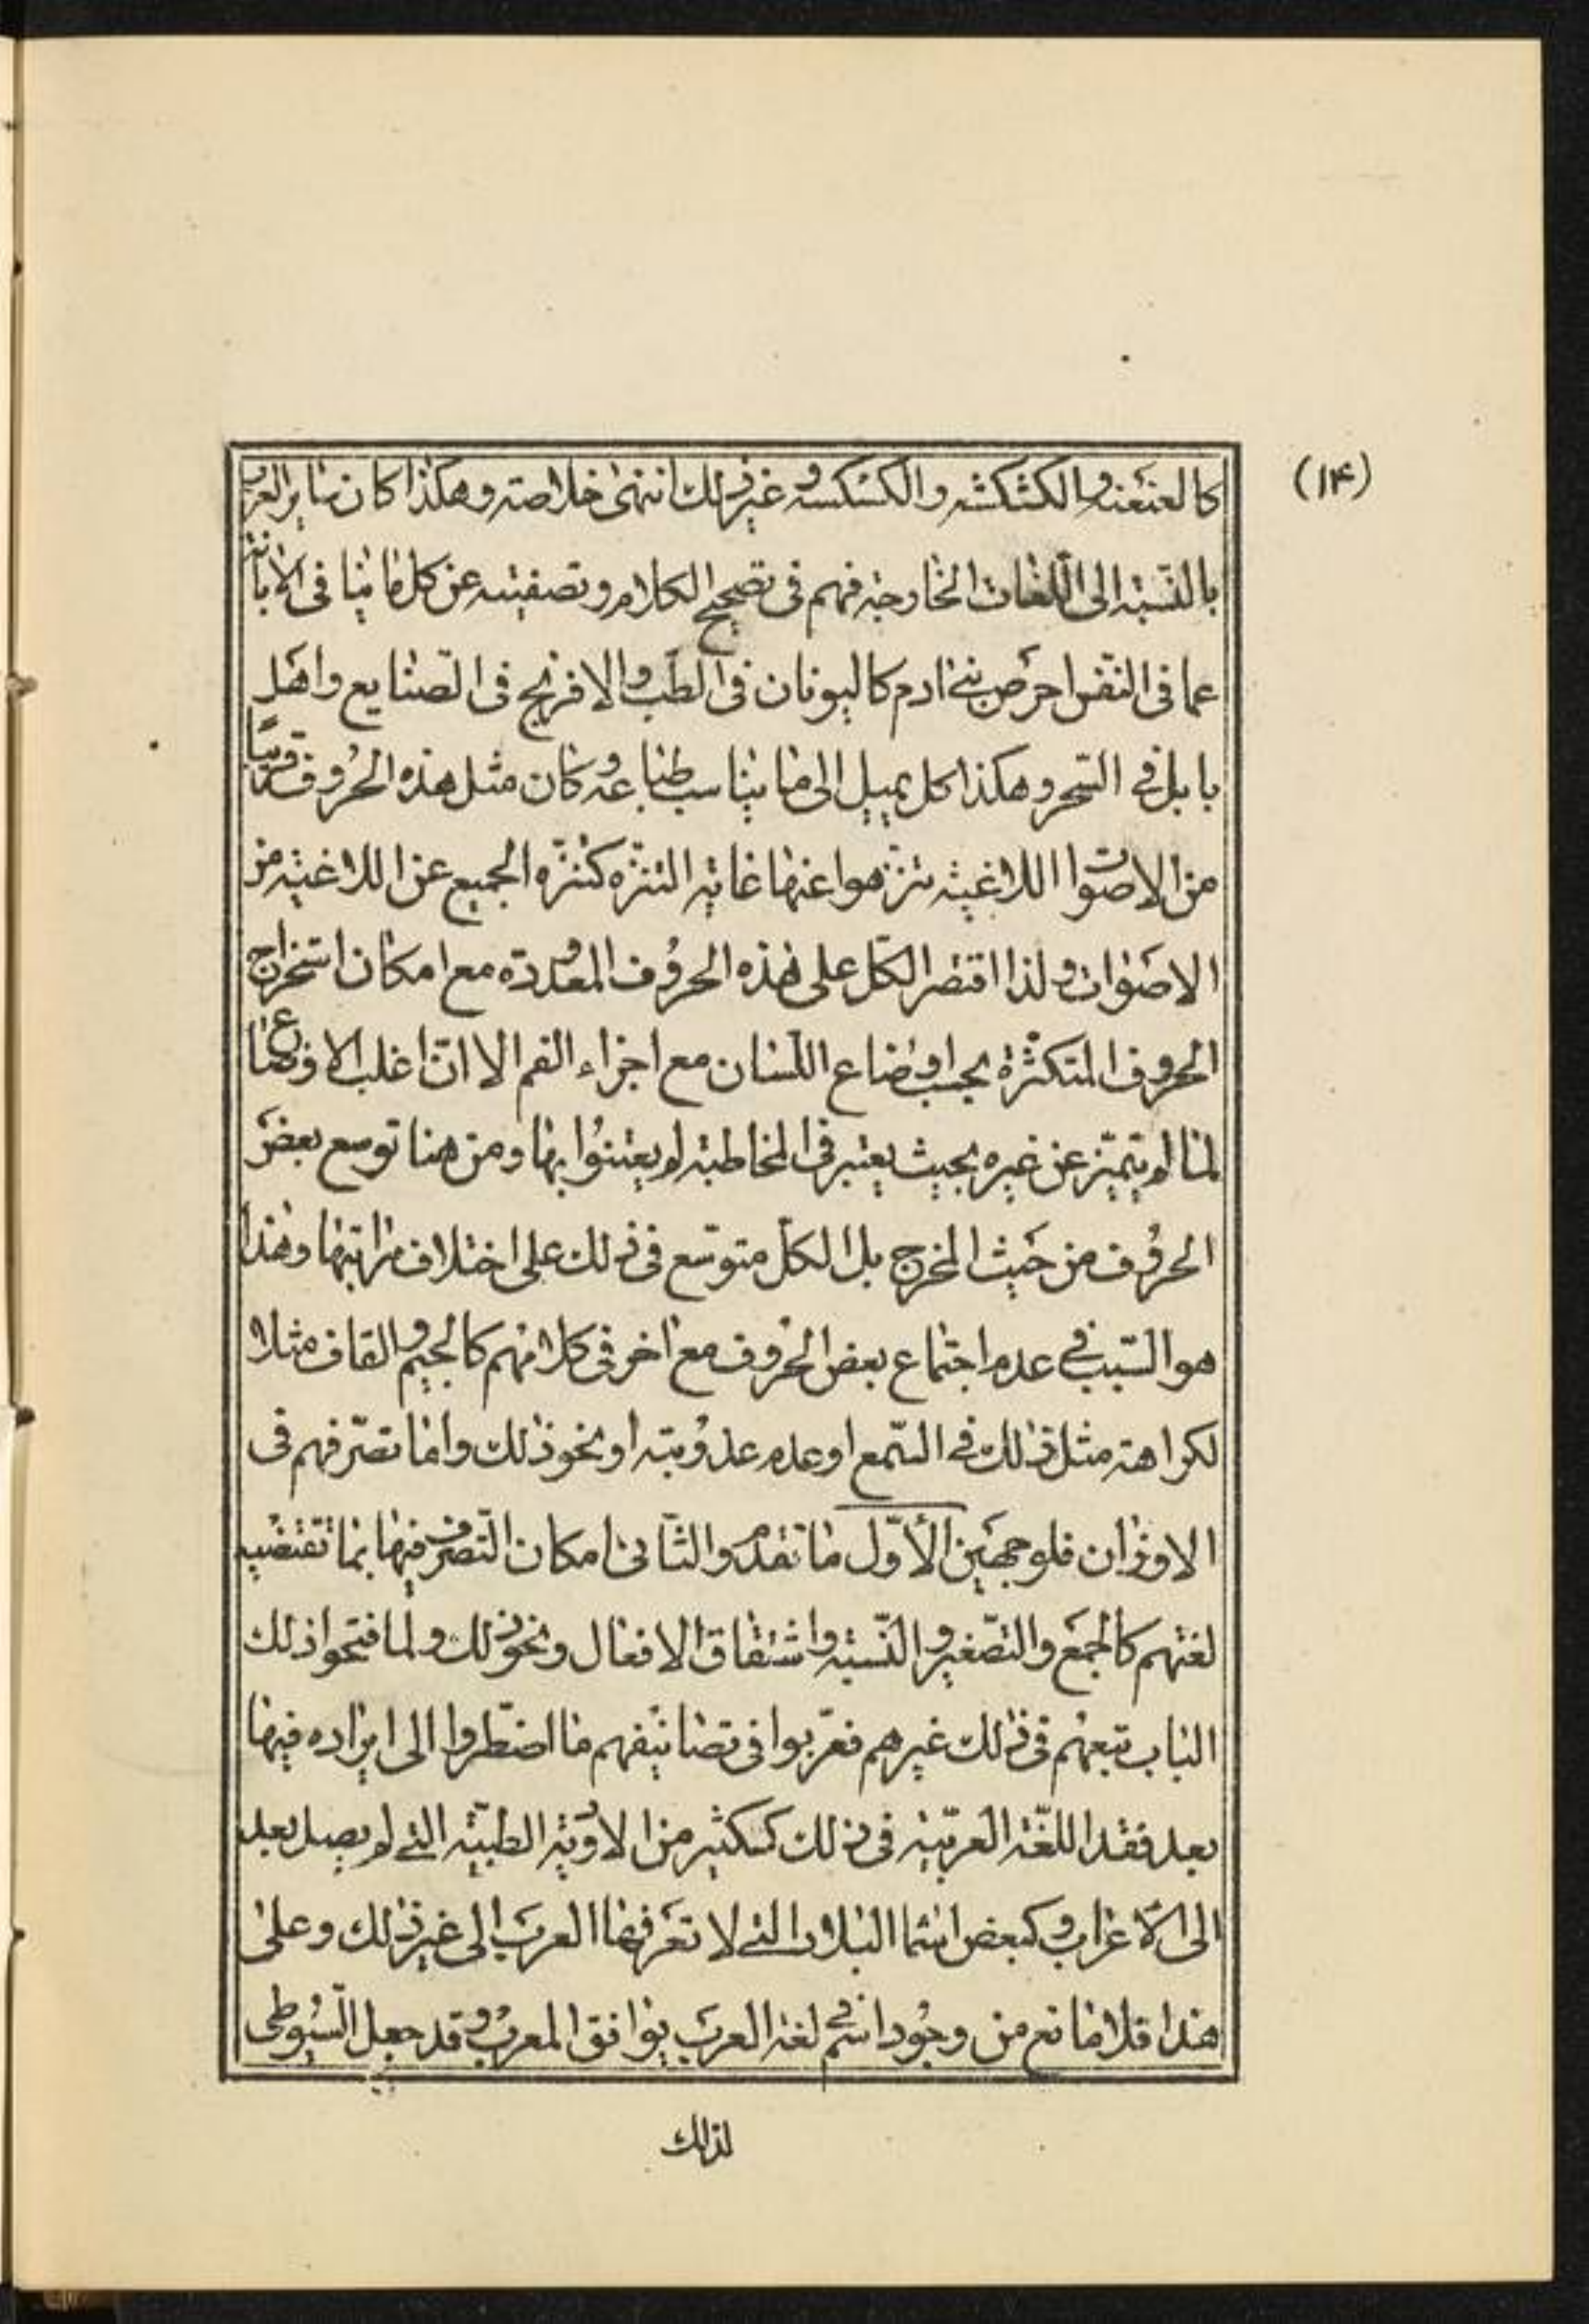 (۱۴)
كالعنعنه والكشكشه والكسكسه وغير ذلك انتهى خلاصته وهكذا كان ساير العرب
بالنّسبته الى اللّغات الخارجيه فهم فى تصحيح الكلام وتصفيته عن كل ما ينافى الابانته
عما فى النّفس احرص بنى ادم كاليونان فى الطّب والافرنج فى الصّنايع واهل
بابل فى السّحر وهكذا كل يميل الى ما يناسب طباعه وكان مثل هذه الحروف قريبًا
من الاصوات اللاغيته تنزّهوا عنها غايته التنزّه كتنزّه الجميع عن اللاغيته من
الاصوات ولذا اقتصر الكلّ على هذه الحروف المعدوده مع امكان استخراج
الحروف المتكثّرة بحسب اوضاع اللّسان مع اجزاء الفم الا انّ اغلب الاوضاع
لما لم يتميّز عن غيره بحيث يعتبر فى المخاطبته لم يعتنوا بها ومن هنا توسع بعض
الحروف من حيث المخرج بل الكلّ متوسّع فى ذلك على اختلاف مراتبها وهذا
هو السّبب فى عدم اجتماع بعض الحروف مع اخر فى كلامهم كالجيم والقاف مثلا
لكراهته مثل ذلك فى السّمع او عدم عذوبته او نحو ذلك واما تصّرفهم فى
الاوزان فلوجهين الأوّل ما تقدم والثّانى امكان التّصرف فيها بما تقتضيه
لغتهم كالجمع والتّصغير والنّسبته واشتقاق الافعال ونحو ذلك ولما فتحوا ذلك
الباب تبعهم فى ذلك غيرهم فعرّبوا فى تصانيفهم ما اضطّروا الى ايراده فيها
بعد فقد اللّغته العربيّته فى ذلك ككثير من الادويته الطبيّته التى لم يصل بعد
الى الأعراب وكبعض اسما البلاد التى لا تعرفها العرب الى غير ذلك وعلى
هذا فلا مانع من وجود اسم فى لغته العرب يوافق المعرب وقد جعل السّيوطى
لذلك